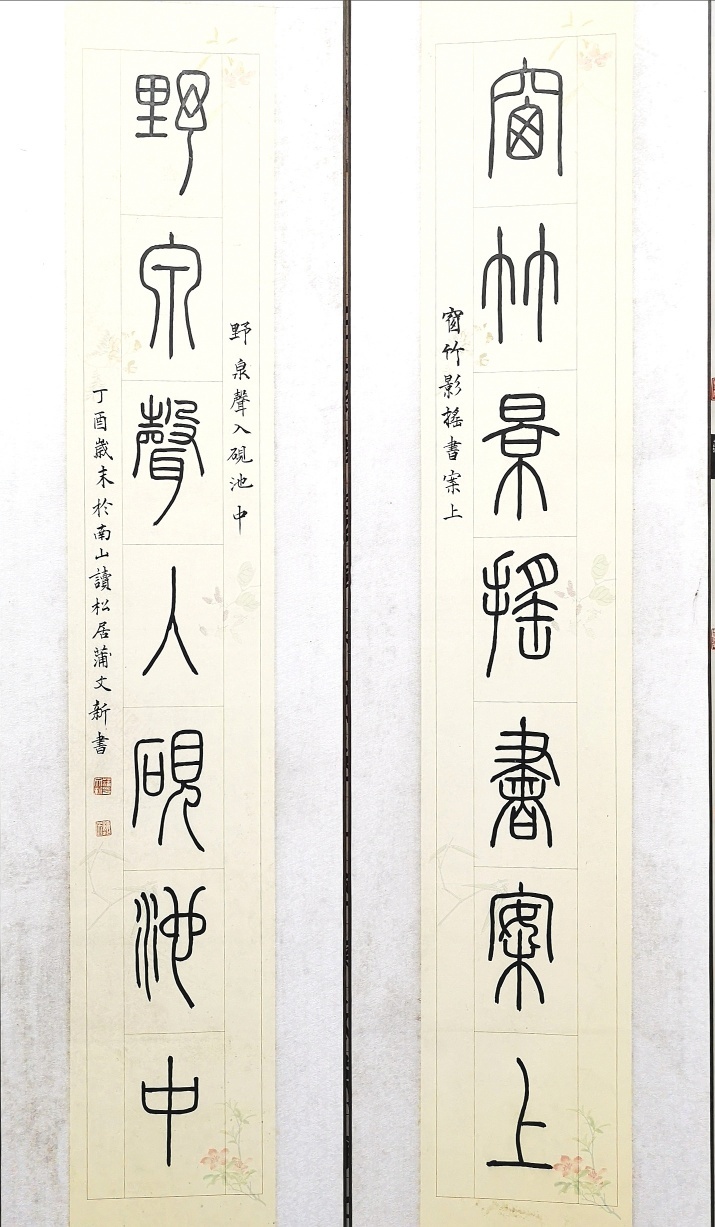 窗竹景搖書案上
窗竹影搖書案上
野泉聲入硯池中
野泉聲入硯池中
丁酉歲末於南山讀松居蒲文新書